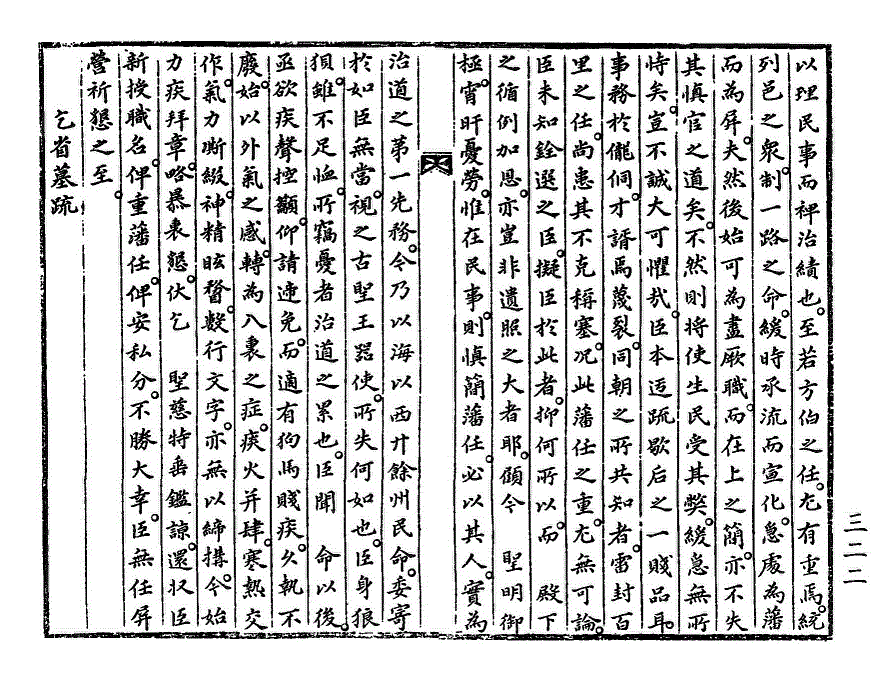 以理民事而裨治績也。至若方伯之任。尤有重焉。統
列邑之衆。制一路之命。緩時承流而宣化。急處為藩
而為屛。夫然後始可為盡厥職。而在上之簡。亦不失
其愼官之道矣。不然則將使生民受其弊。緩急無所
恃矣。豈不誠大可懼哉。臣本迃疏歇后之一賤品耳。
事務於儱侗。才諝焉蔑裂。同朝之所共知者。雷封百
里之任。尙患其不克稱塞。况此藩任之重。尤無可論。
臣未知銓選之臣。擬臣於此者。抑何所以。而 殿下
之循例加恩。亦豈非遺照之大者耶。顧今 聖明御
極。宵旰憂勞。惟在民事。則愼簡藩任。必以其人。實為
治道之第一先務。今乃以海以西廿餘州民命。委寄
於如臣無當。視之古聖王器使。所失何如也。臣身狼
狽。雖不足恤。所竊憂者治道之累也。臣聞 命以後。
亟欲疾聲控籲。仰請遞免。而適有狗馬賤疾。久執不
廢。始以外氣之感。轉為八裏之症。痰火幷肆。寒熱交
作。氣力嘶綴。神精眩瞀。數行文字。亦無以締搆。今始
力疾拜章。略暴衷懇。伏乞 聖慈特垂鑑諒。還收臣
新授職名。俾重藩任。俾安私分。不勝大幸。臣無任屛
營祈懇之至。
乞省墓疏
三二二